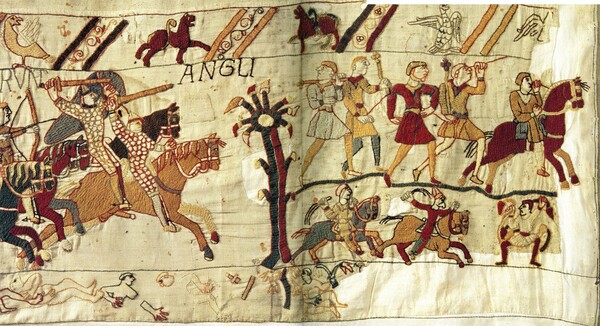 RVNT
ANGLI